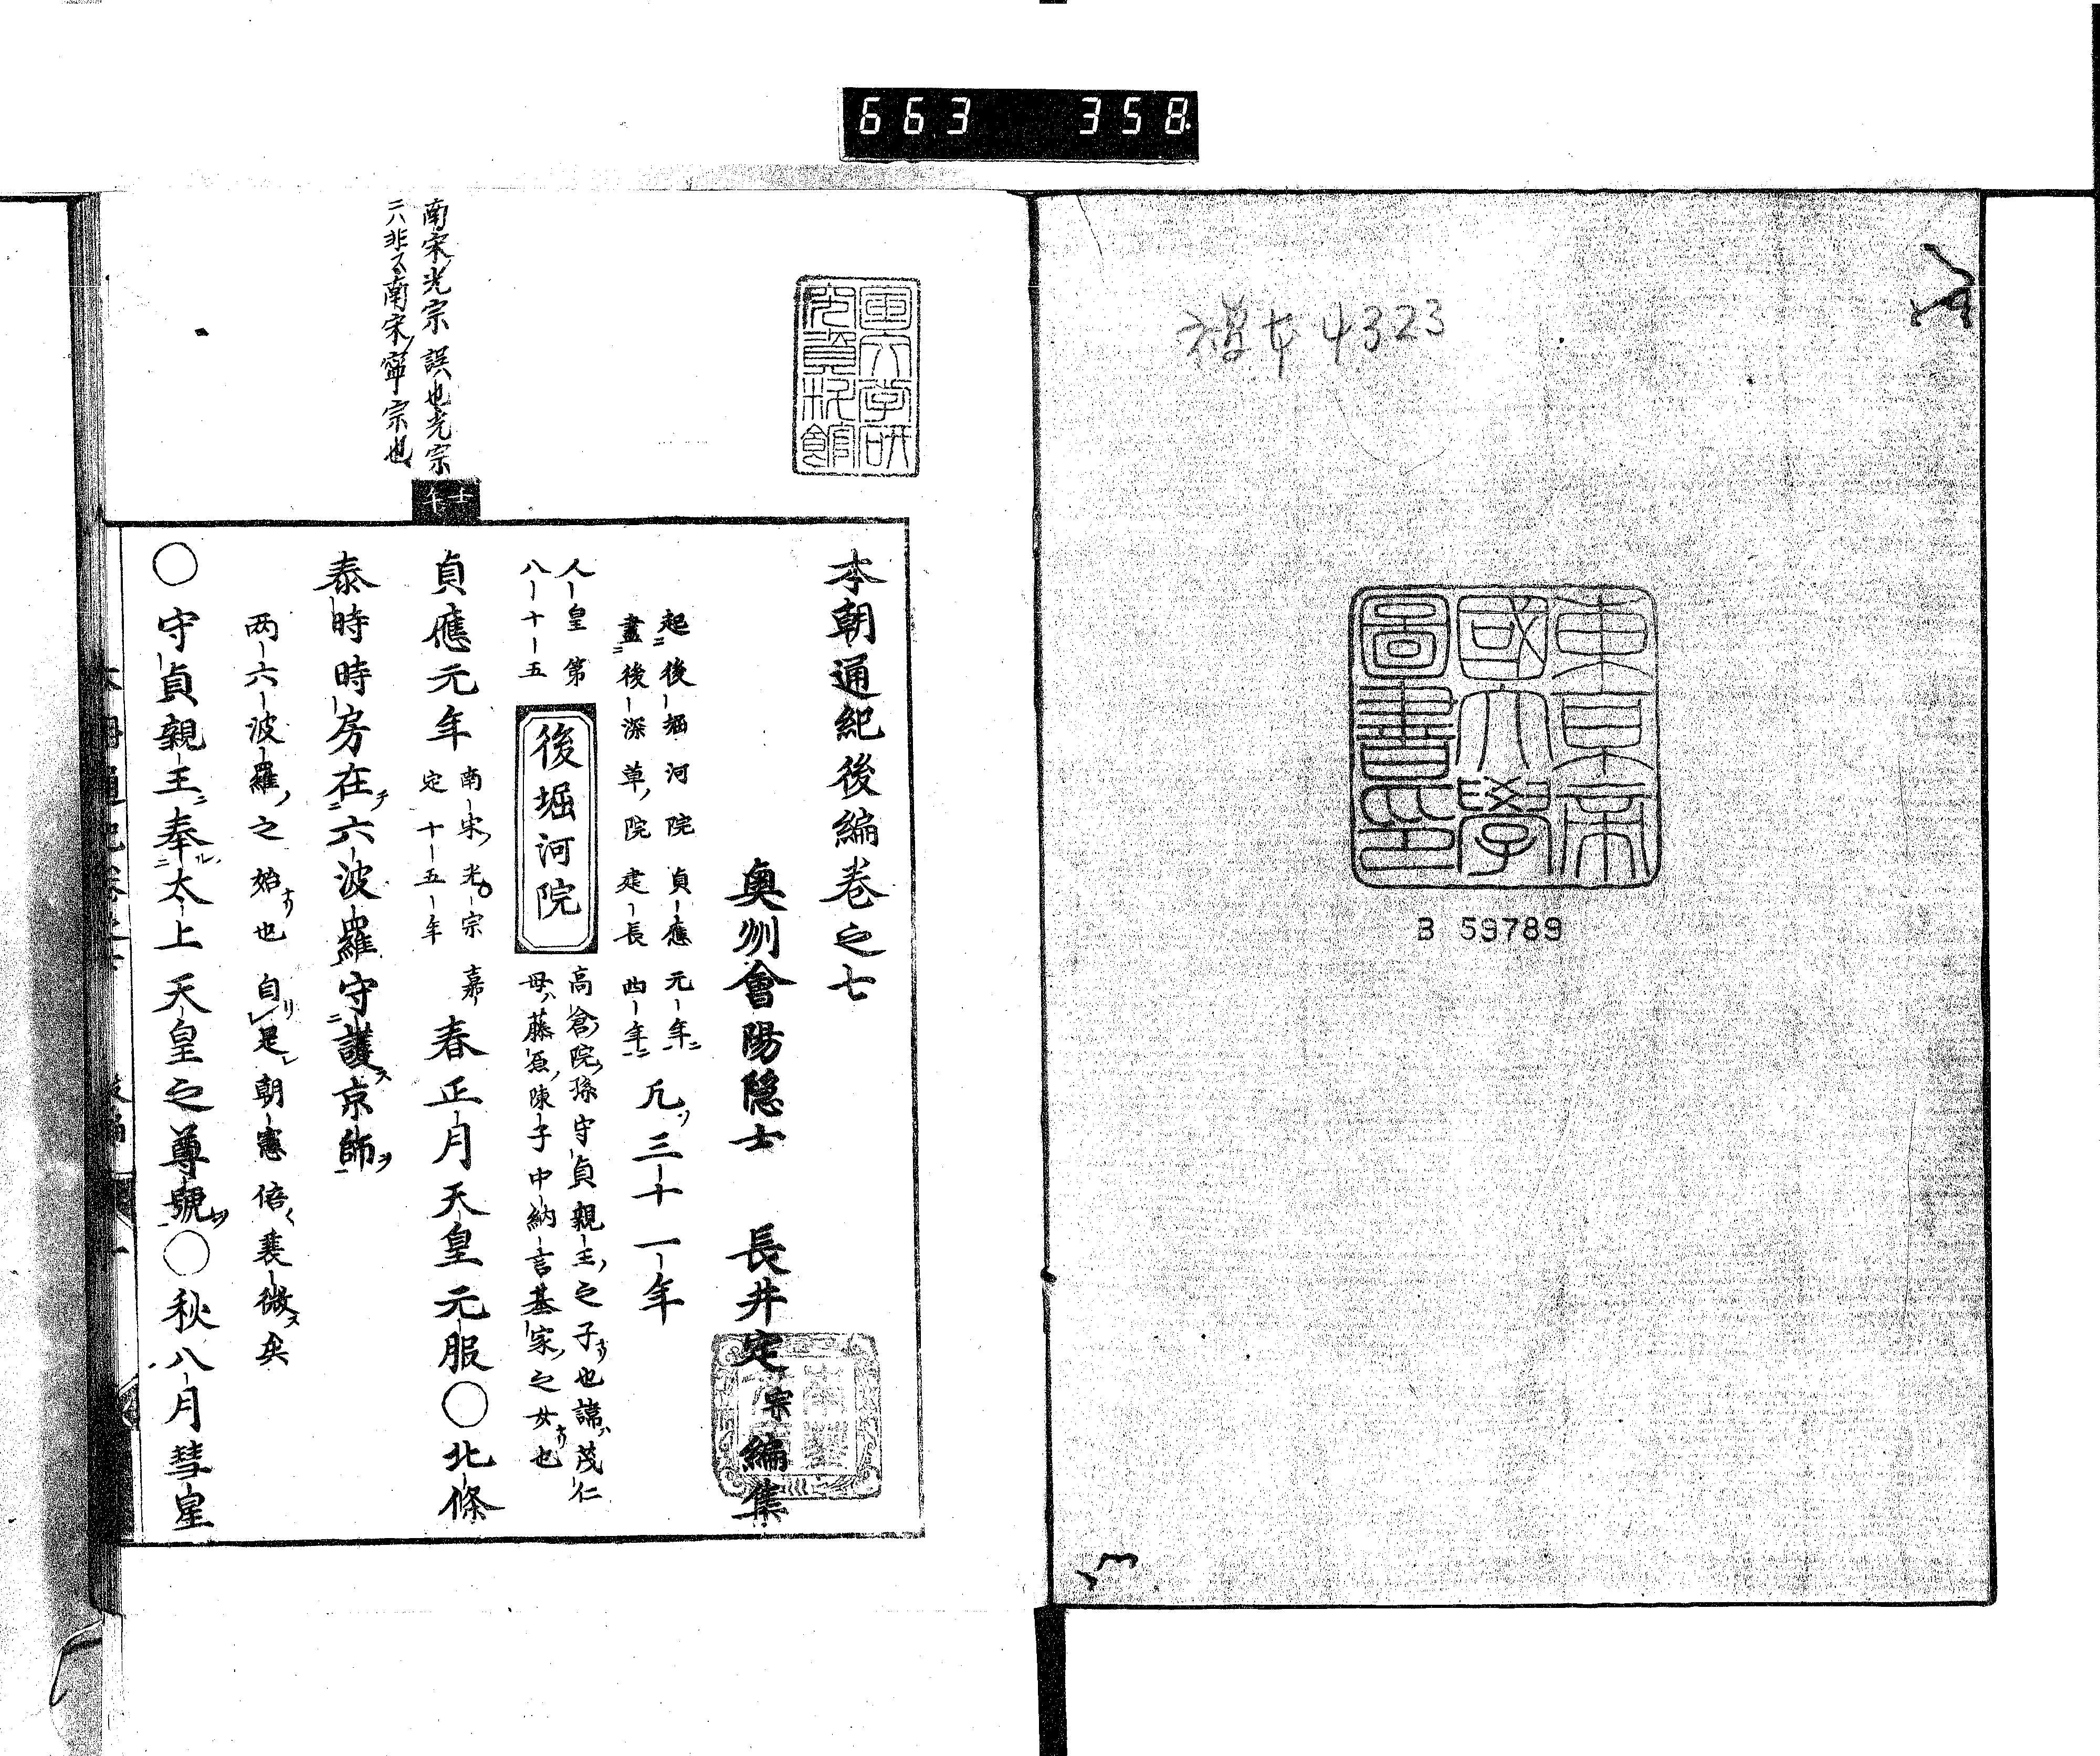 663 358
4323
東京帝
國大學
圖書印
B 59789
国文学研
究資料館
南宋光宗誤也光宗
ニハ非ス南宋寧宗也
十一年
本朝通紀後編卷之七
奥州會陽隱士 長井定宗編集
起後堀河院貞應元年
盡後深草院建長四年
凡三十一年
人皇第
八十五
後堀河院
高倉院孫守貞親王之子也諱茂仁
母藤原陳子中納言基家之女也
貞應元年
南宋光宗嘉
定十五年
春正月天皇元服○北條
泰時時房在六波羅守護京師
兩六波羅之始也自是朝憲倍衰微矣
○守貞親王奉太上天皇之尊號○秋八月彗星